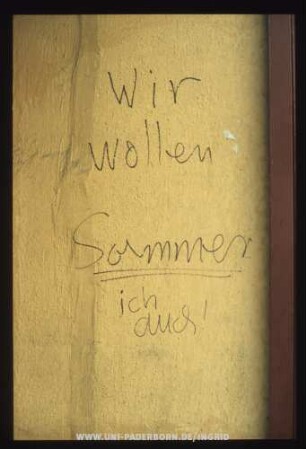 Wir
wollen
Sommer
ich
auch!
WWW.UNI-PADERBORN.DE/INGRID